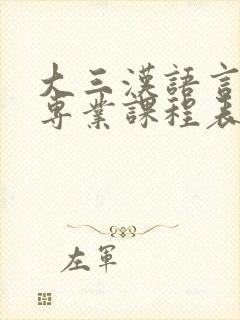 大三漢語言
專業課程表
左軍